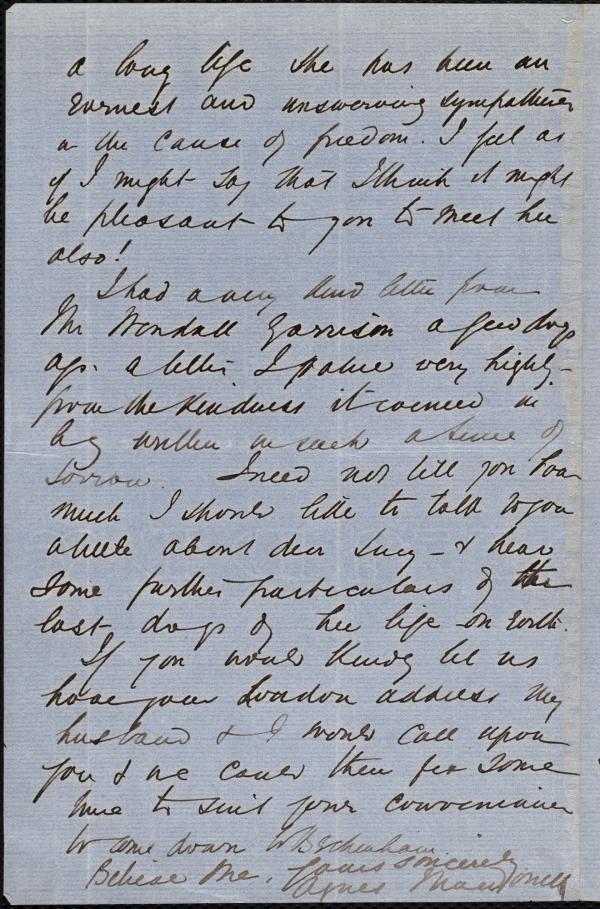 a long life she has been an
Earnest and unswerving sympathizer
in the cause of freedom. I feel as
if I might say that I think it might
be pleasant to you to meet her
also!
I had a very kind letter from
Mr Wendall Garrison a few days
ago. a letter I value very highly -
from the kindness it conveied in
being written in such a time of
sorrow. I need not tell you how
much I should like to talk to you
a little about dear Lucy - & hear
some further particulars of the
last days of her life on Earth.
If you would kindly let us
have your London address my
husband & I would call upon
you & we could then fix some
time to suit your convenience
to come down to Beckenham
Believe me, Yours sincerely
Agnes Macdonell